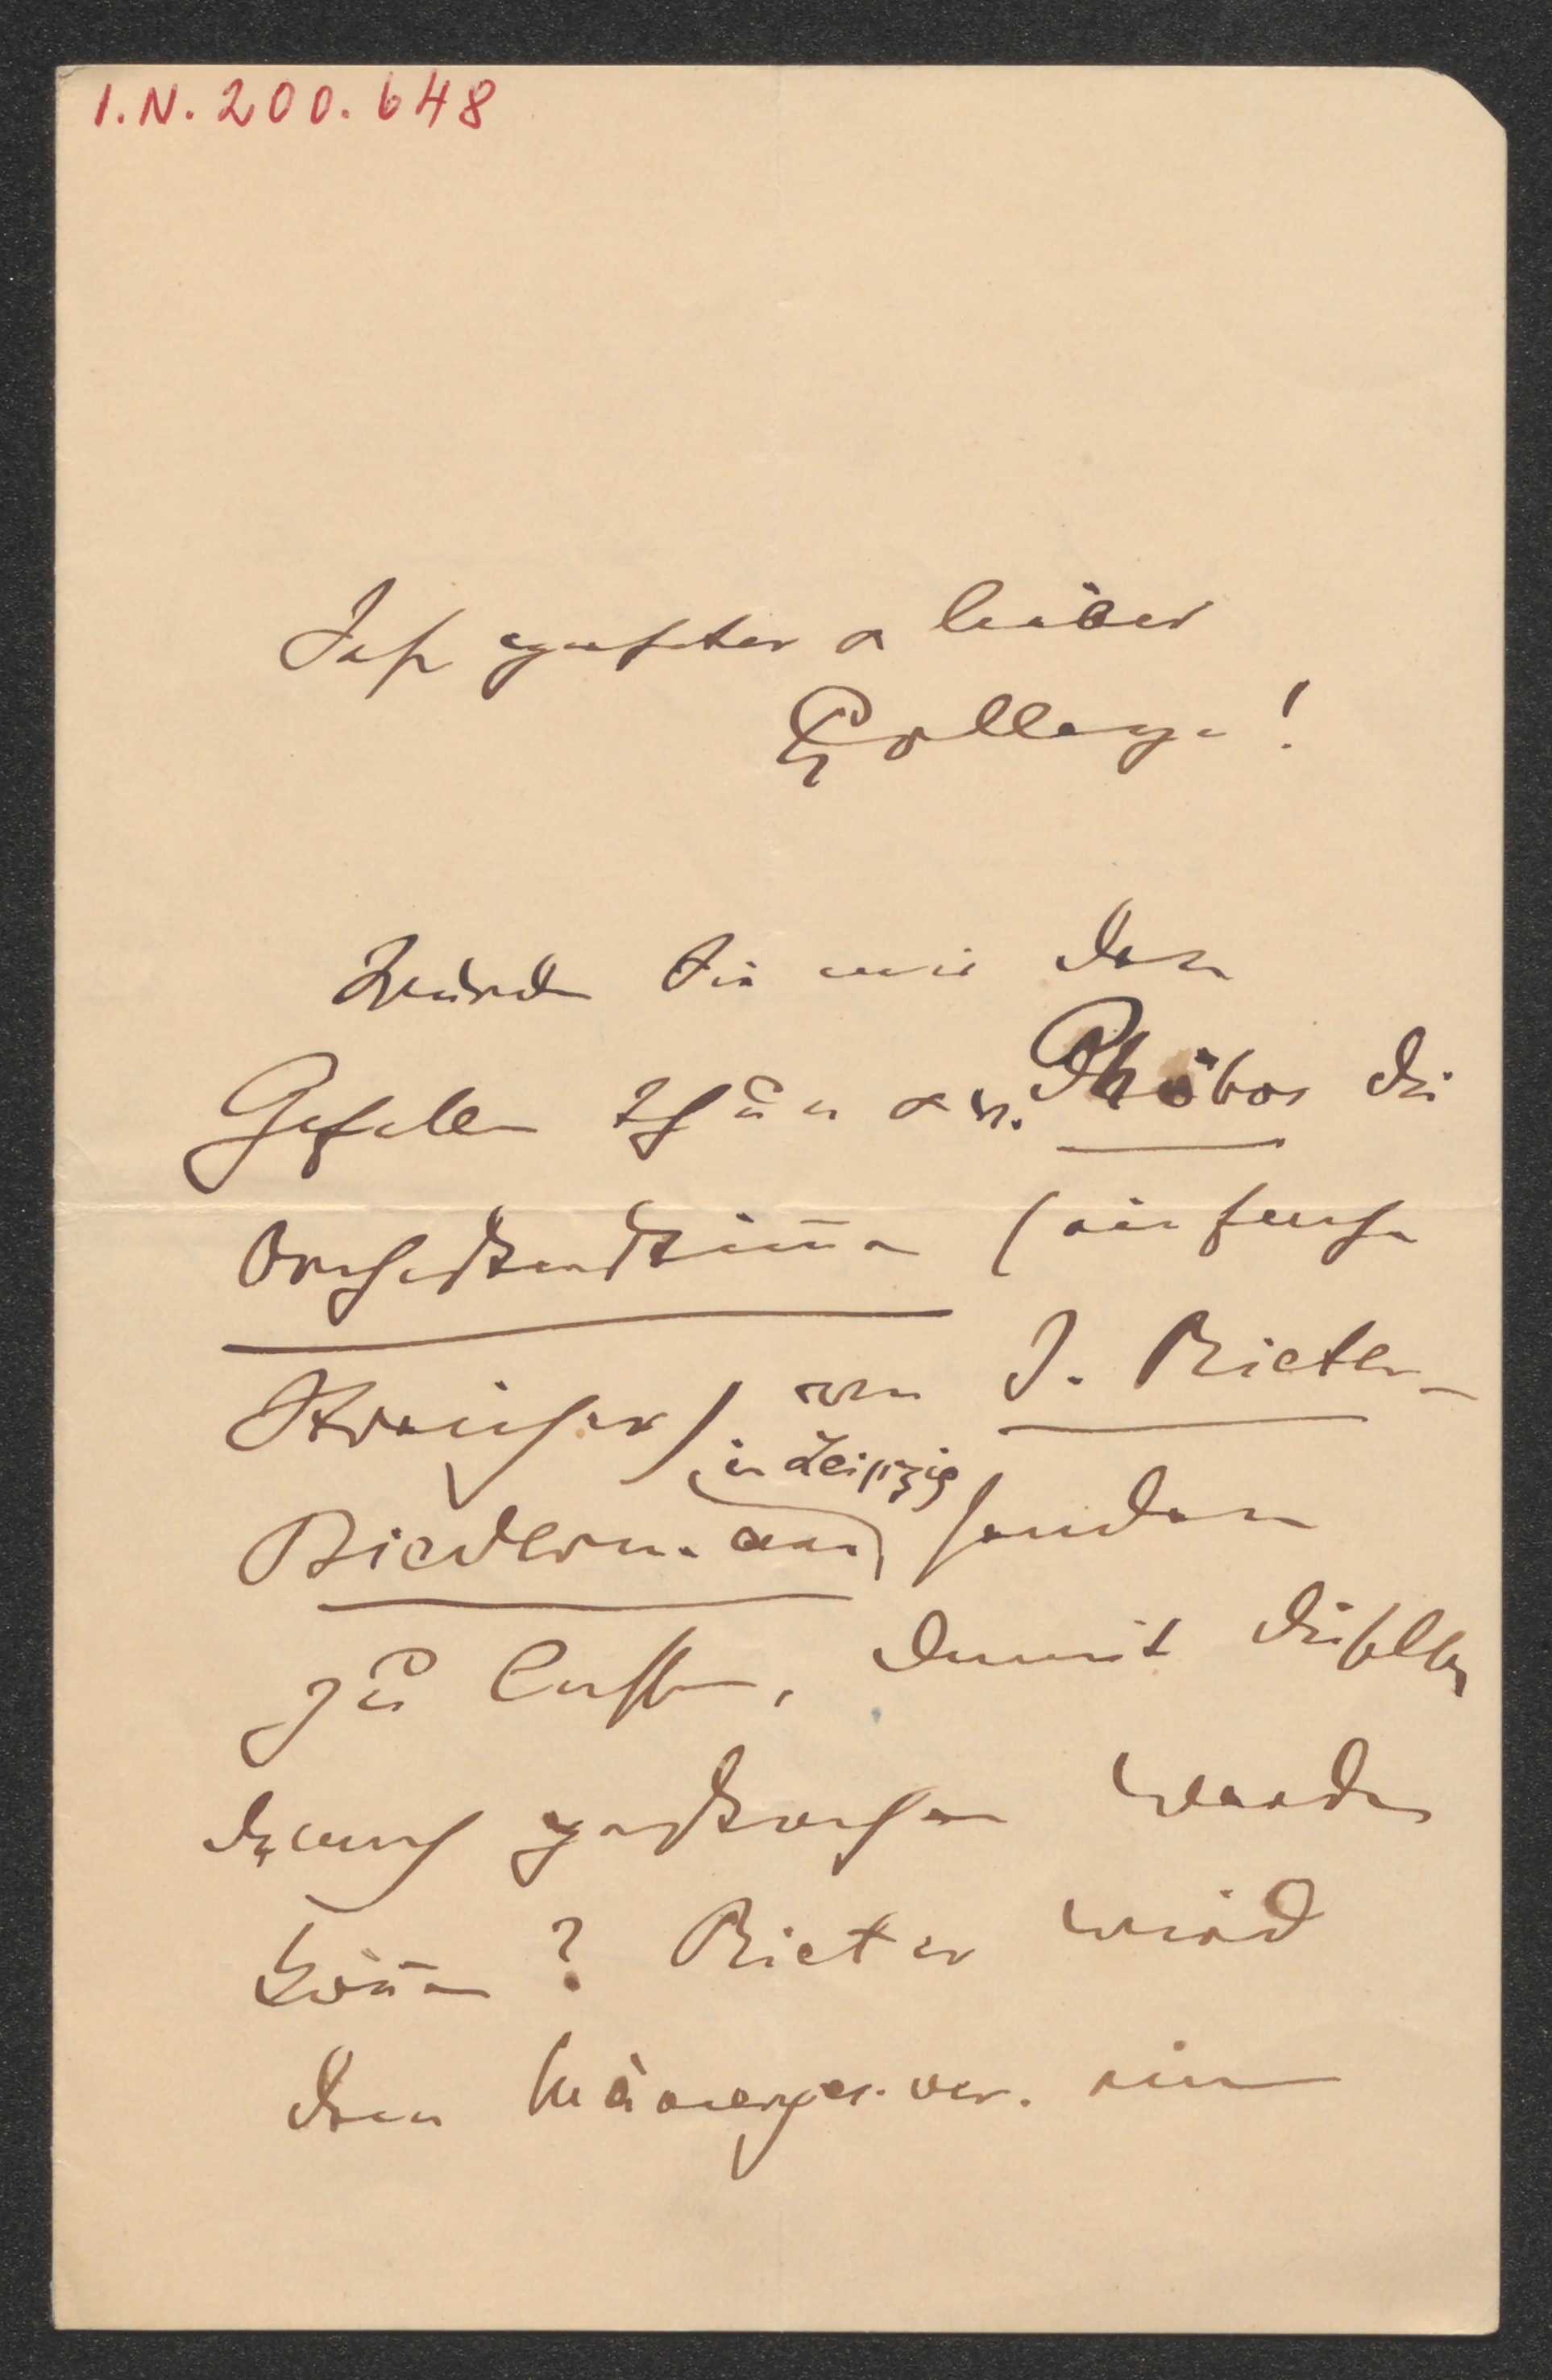 I.N. 200.648
Sehr geehrter u lieber
College!
Würden Sie mir den
Gefallen thun u v. Phöbos die
Orchesterstim̅en (einfache
Streicher) von J. Rieter-
in Leipzig
Biedermann senden
zu lassen, damit dieselben
darnach gestochen werden
kön̅en? Rieter wird
dem Mänerges. ver. ein